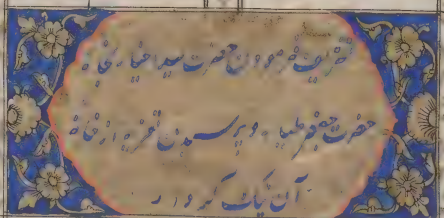 تشریف فرمودن حضرت سید انبیا بخانه
حضرت جعفر طیار و پرسیدن تعزیه از خانهٔ
آن پاک کردار